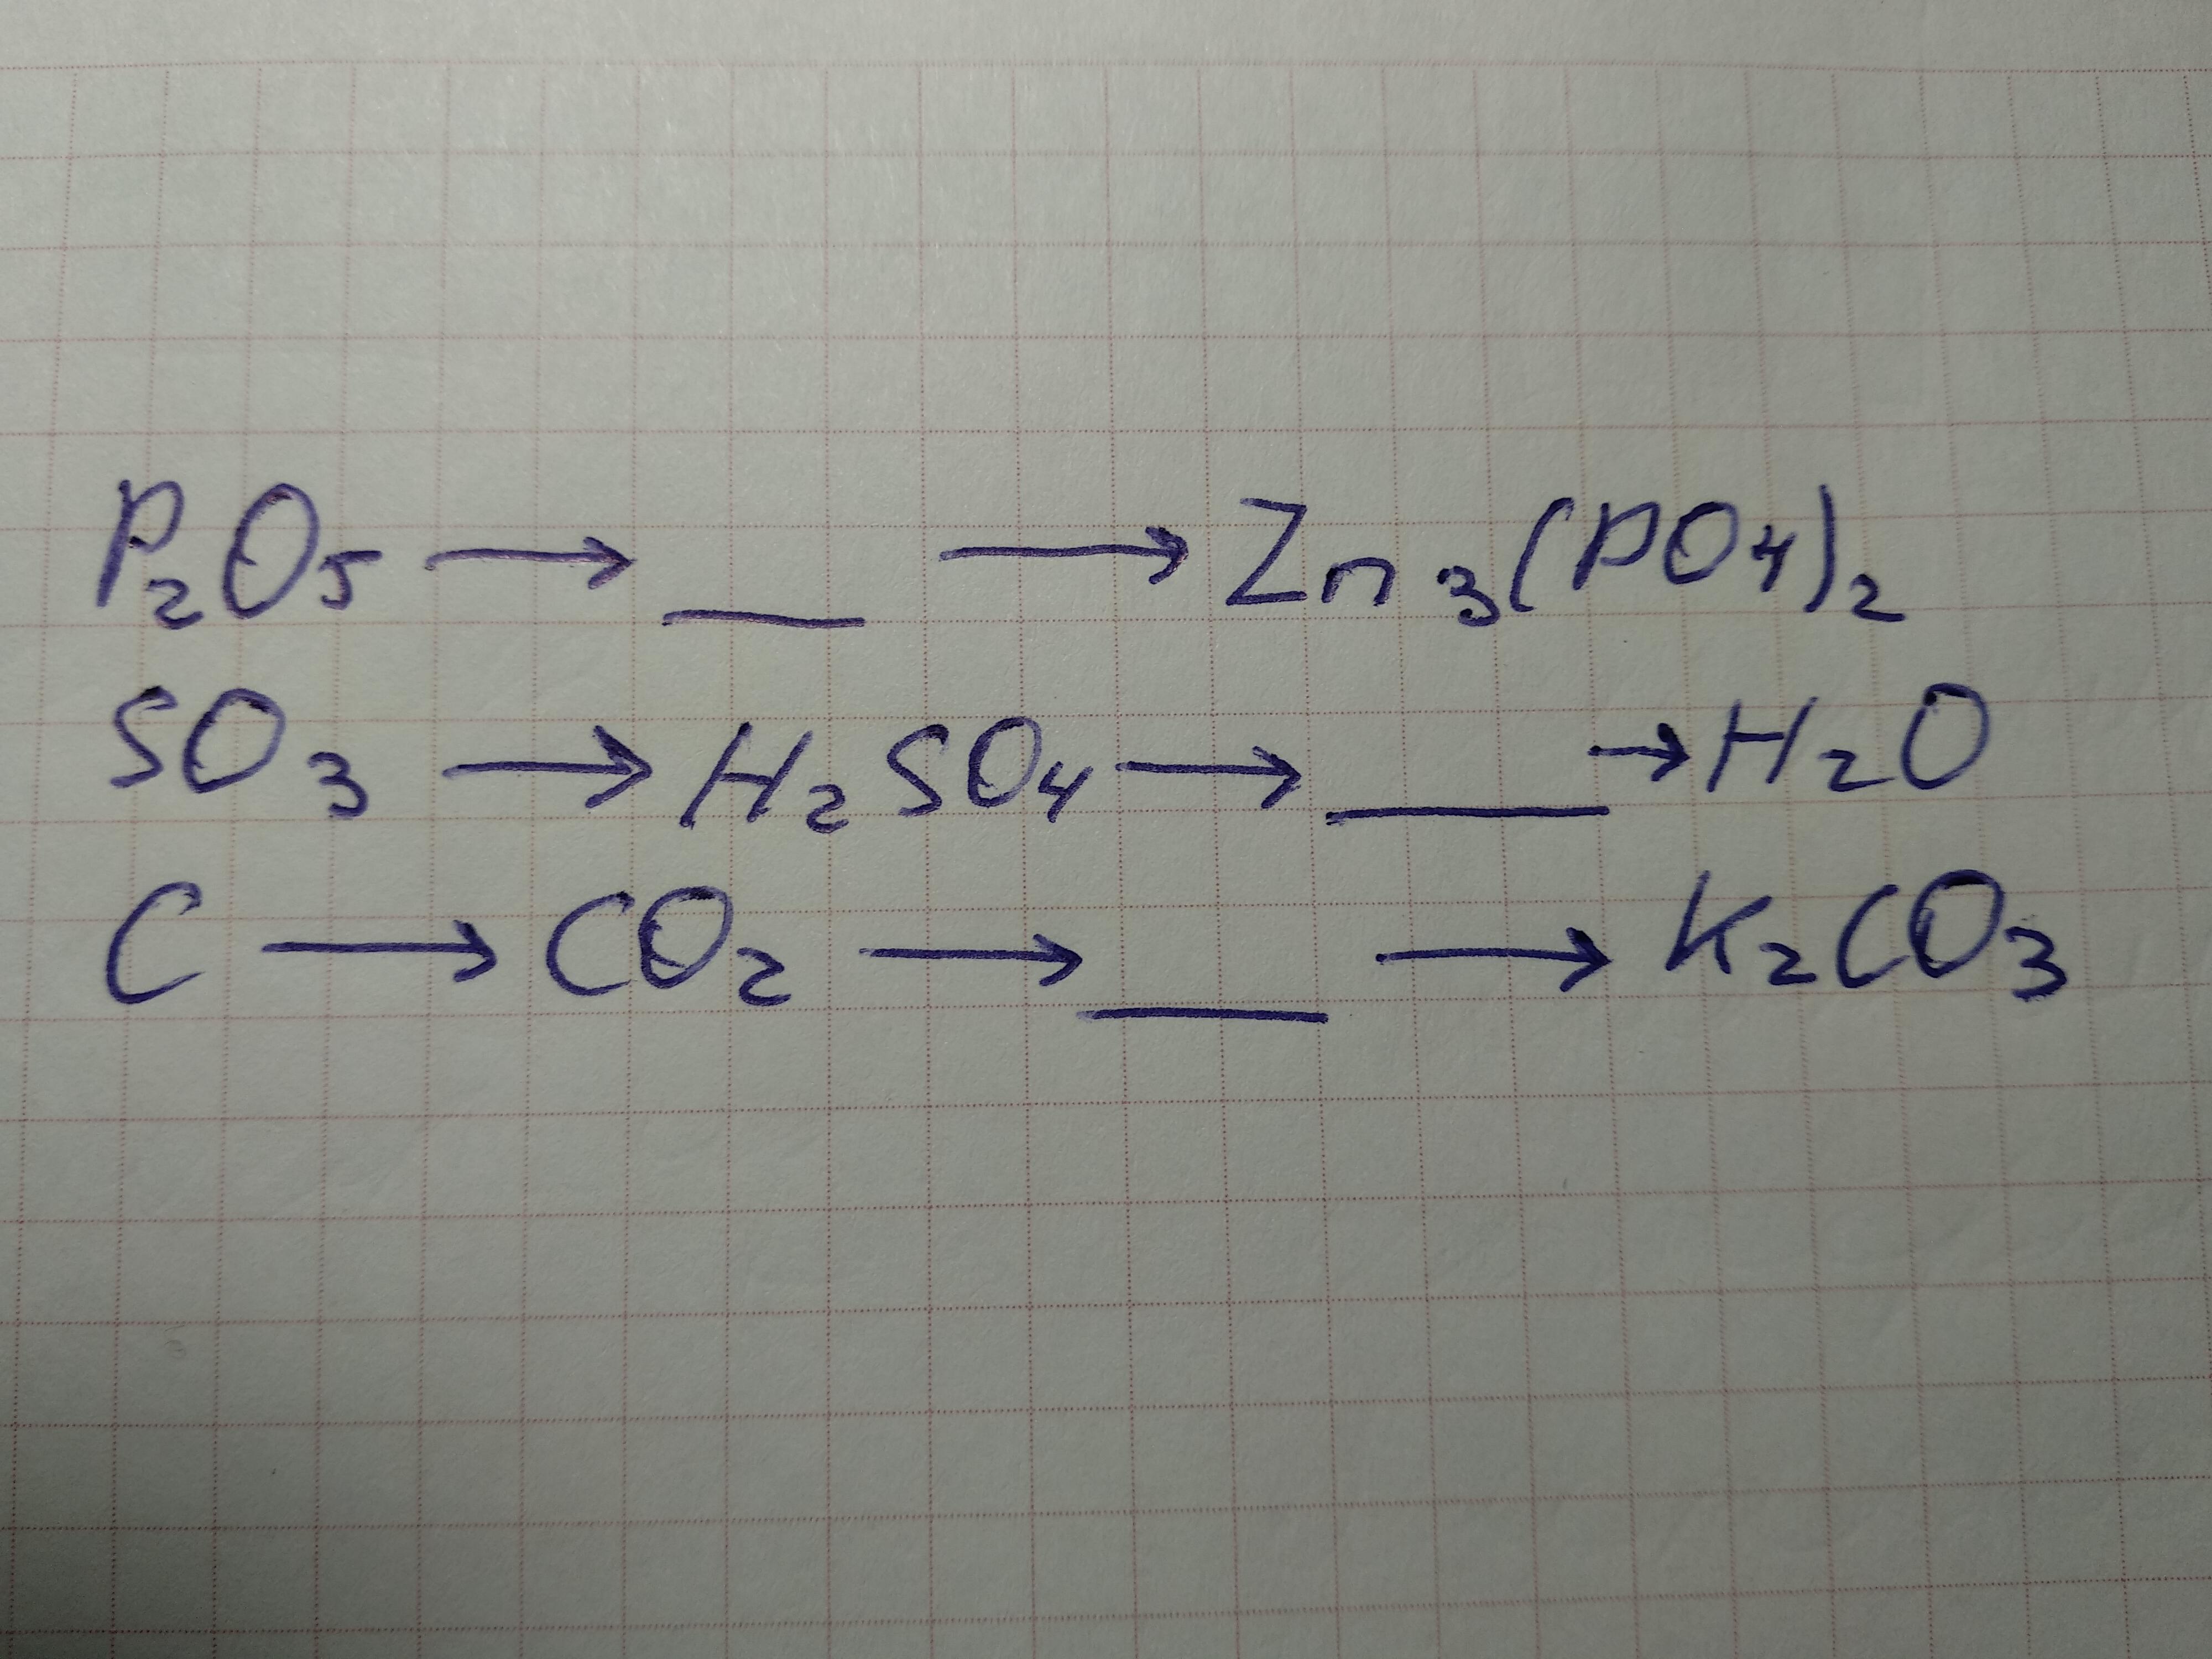 P₂O₅ → ___ → Zn₃(PO₄)₂
SO₃ → H₂SO₄ → ___ → H₂O
C → CO₂ → ___ → K₂CO₃